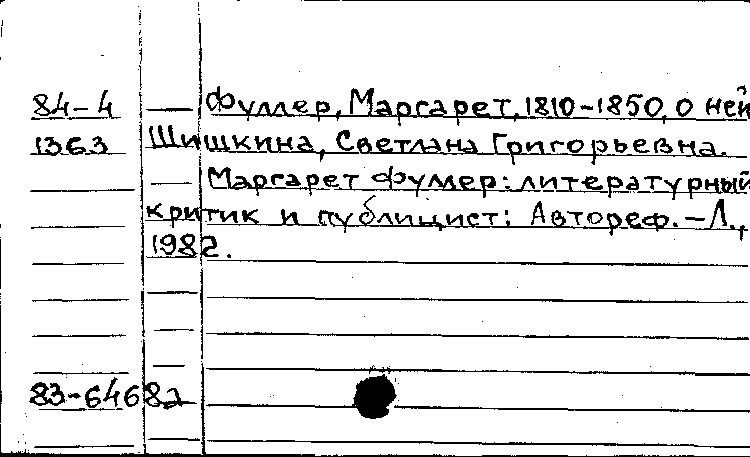 84-4 Фуллер, Маргарет, 1810-1850, о ней
1363 Шишкина, Светлана Григорьевна.
Маргарет Фуллер: литературный
критик и публицист: Автореф. - Л.,
1982.
83-64682